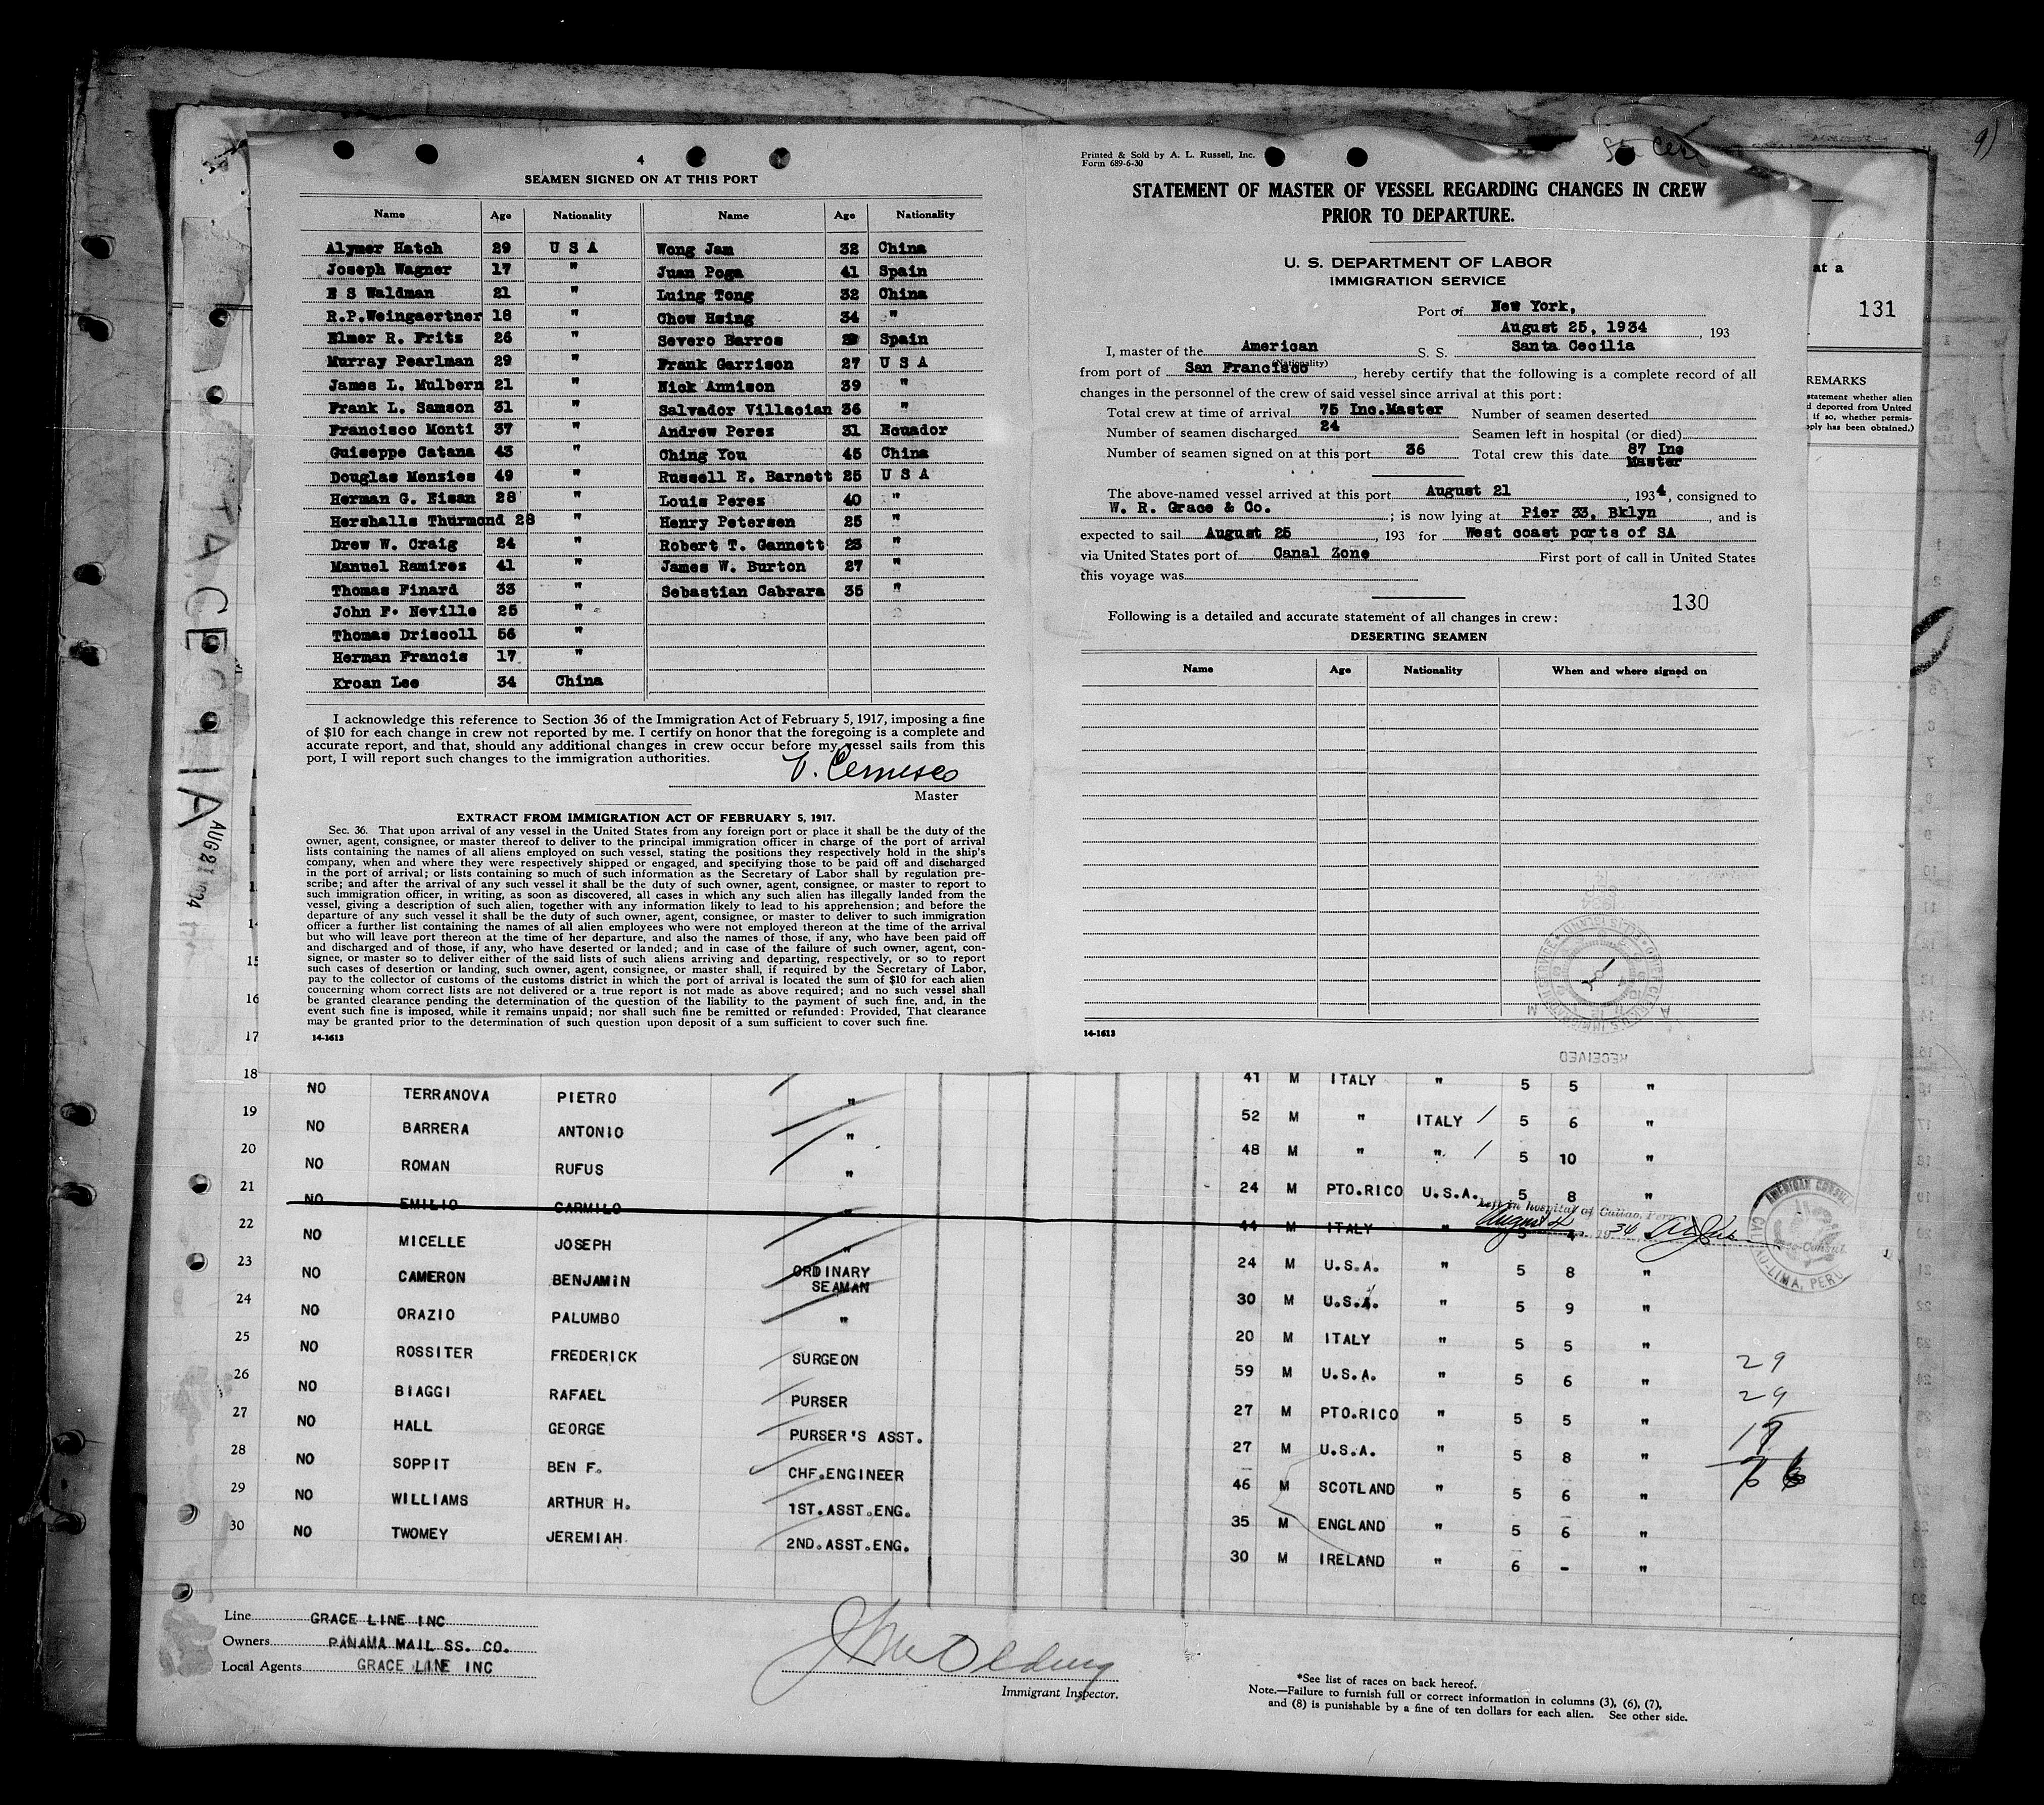 4
SEAMEN SIGNED ON AT THIS PORT
Name Age Nationality Name Age Nationality
Alymer Hatch 29 U S A Wong Jam 32 China
Joseph Wagner 17 " Juan Poga 41 Spain
E S Waldman 21 " Luing Tong 32 China
R.P.Weingaertner 18 " Chow Hsing 34 "
Elmer R. Fritz 26 " Severo Barros Spain
Murray Pearlman 29 " Frank Garrison 27 U S A
James L. Mulbern 21 " Nick Annison 39 "
Frank L. Samson 31 " Salvador Villacian 36 "
Francisco Monti 37 " Andrew Perez 31 Ecuador
Guiseppe Catana 43 " Ching You 45 China
Douglas Menzies 49 " Russell E. Barnett 25 U S A
Herman G. Eisan 28 " Louis Perez 40 "
Hershalls Thurmond 28 " Henry Petersen 25 "
Drew W. Craig 24 " Robert T. Gannett 23 "
Manuel Ramirez 41 " James W. Burton 27 "
Thomas Finard 33 " Sebastian Cabrara 35 "
John F. Neville 25 "
Thomas Driscoll 56 "
Herman Francis 17 "
Kroan Lee 34 China
I acknowledge this reference to Section 36 of the Immigration Act of February 5, 1917, imposing a fine
of $10 for each change in crew not reported by me. I certify on honor that the foregoing is a complete and
accurate report, and that, should any additional changes in crew occur before my vessel sails from this
port, I will report such changes to the immigration authorities.
Master
EXTRACT FROM IMMIGRATION ACT OF FEBRUARY 5, 1917.
Sec. 36. That upon arrival of any vessel in the United States from any foreign port or place it shall be the duty of the
owner, agent, consignee, or master thereof to deliver to the principal immigration officer in charge of the port of arrival
lists containing the names of all aliens employed on such vessel, stating the positions they respectively hold in the ship's
company, when and where they were respectively shipped or engaged, and specifying those to be paid off and discharged
in the port of arrival; or lists containing so much of such information as the Secretary of Labor shall by regulation pre-
scribe; and after the arrival of any such vessel it shall be the duty of such owner, agent, consignee, or master to report to
such immigration officer, in writing, as soon as discovered, all cases in which any such alien has illegally landed from the
vessel, giving a description of such alien, together with any information likely to lead to his apprehension; and before the
departure of any such vessel it shall be the duty of such owner, agent, consignee, or master to deliver to such immigration
officer a further list containing the names of all alien employees who were not employed thereon at the time of the arrival
but who will leave port thereon at the time of her departure, and also the names of those, if any, who have been paid off
and discharged and of those, if any, who have deserted or landed; and in case of the failure of such owner, agent, con-
signee, or master so to deliver either of the said lists of such aliens arriving and departing, respectively, or so to report
such cases of desertion or landing, such owner, agent, consignee, or master shall, if required by the Secretary of Labor,
pay to the collector of customs of the customs district in which the port of arrival is located the sum of $10 for each alien
concerning whom correct lists are not delivered or a true report is not made as above required; and no such vessel shall
be granted clearance pending the determination of the question of the liability to the payment of such fine, and, in the
event such fine is imposed, while it remains unpaid; nor shall such fine be remitted or refunded: Provided, That clearance
may be granted prior to the determination of such question upon deposit of a sum sufficient to cover such fine.
14-1613
Printed & Sold by A. L. Russell, Inc.
Form 689-6-30
STATEMENT OF MASTER OF VESSEL REGARDING CHANGES IN CREW
PRIOR TO DEPARTURE.
U. S. DEPARTMENT OF LABOR
IMMIGRATION SERVICE
Port of New York,
August 25, 1934, 193
I, master of the American S. S. Santa Cecilia
(Nationality)
from port of San Francisco, hereby certify that the following is a complete record of all
changes in the personnel of the crew of said vessel since arrival at this port:
Total crew at time of arrival 75 Inc.Master Number of seamen deserted
Number of seamen discharged 24 Seamen left in hospital (or died)
Number of seamen signed on at this port 36 Total crew this date 87 Inc
Master
The above-named vessel arrived at this port August 21, 1934, consigned to
W. R. Grace & Co.; is now lying at Pier 33, Bklyn, and is
expected to sail August 25, 193 for West coast ports of SA
via United States port of Canal Zone First port of call in United States
this voyage was
130
Following is a detailed and accurate statement of all changes in crew:
DESERTING SEAMEN
Name Age Nationality When and where signed on
14-1613
RECEIVED
at a
131
REMARKS
statement whether alien
d deported from United
if so, whether permis-
ply has been obtained.)
TA CECILIA
AUG 21 1934
14
15
16
17
18 NO TERRANOVA PIETRO " 41 M ITALY " 5 5 "
19 NO BARRERA ANTONIO " 52 M " ITALY 5 6 "
20 NO ROMAN RUFUS " 48 M " " 5 10 "
21 NO EMILIO CARMILO " 24 M PTO.RICO U.S.A. 5 8 "
Left in hospital of Callao, Peru
August 4 1934
AMERICAN CONSUL
CALLAO-LIMA, PERU
22 NO MICELLE JOSEPH " 44 M ITALY " 5 4
23 NO CAMERON BENJAMIN ORDINARY SEAMAN 24 M U.S.A. " 5 8 "
24 NO ORAZIO PALUMBO " 30 M U.S.A. " 5 9 "
25 NO ROSSITER FREDERICK SURGEON 20 M ITALY " 5 5 " 29
26 NO BIAGGI RAFAEL PURSER 59 M U.S.A. " 5 6 " 29
27 NO HALL GEORGE PURSER'S ASST. 27 M PTO.RICO " 5 5 "
28 NO SOPPIT BEN F. CHF.ENGINEER 27 M U.S.A. " 5 8 "
29 NO WILLIAMS ARTHUR H. 1ST.ASST.ENG. 46 M SCOTLAND " 5 6 "
30 NO TWOMEY JEREMIAH 2ND.ASST.ENG. 35 M ENGLAND " 5 6 "
30 M IRELAND " 6 - "
Line GRACE LINE INC
Owners PANAMA MAIL SS. CO.
Local Agents GRACE LINE INC
Immigrant Inspector.
*See list of races on back hereof.
Note.—Failure to furnish full or correct information in columns (3), (6), (7),
and (8) is punishable by a fine of ten dollars for each alien. See other side.